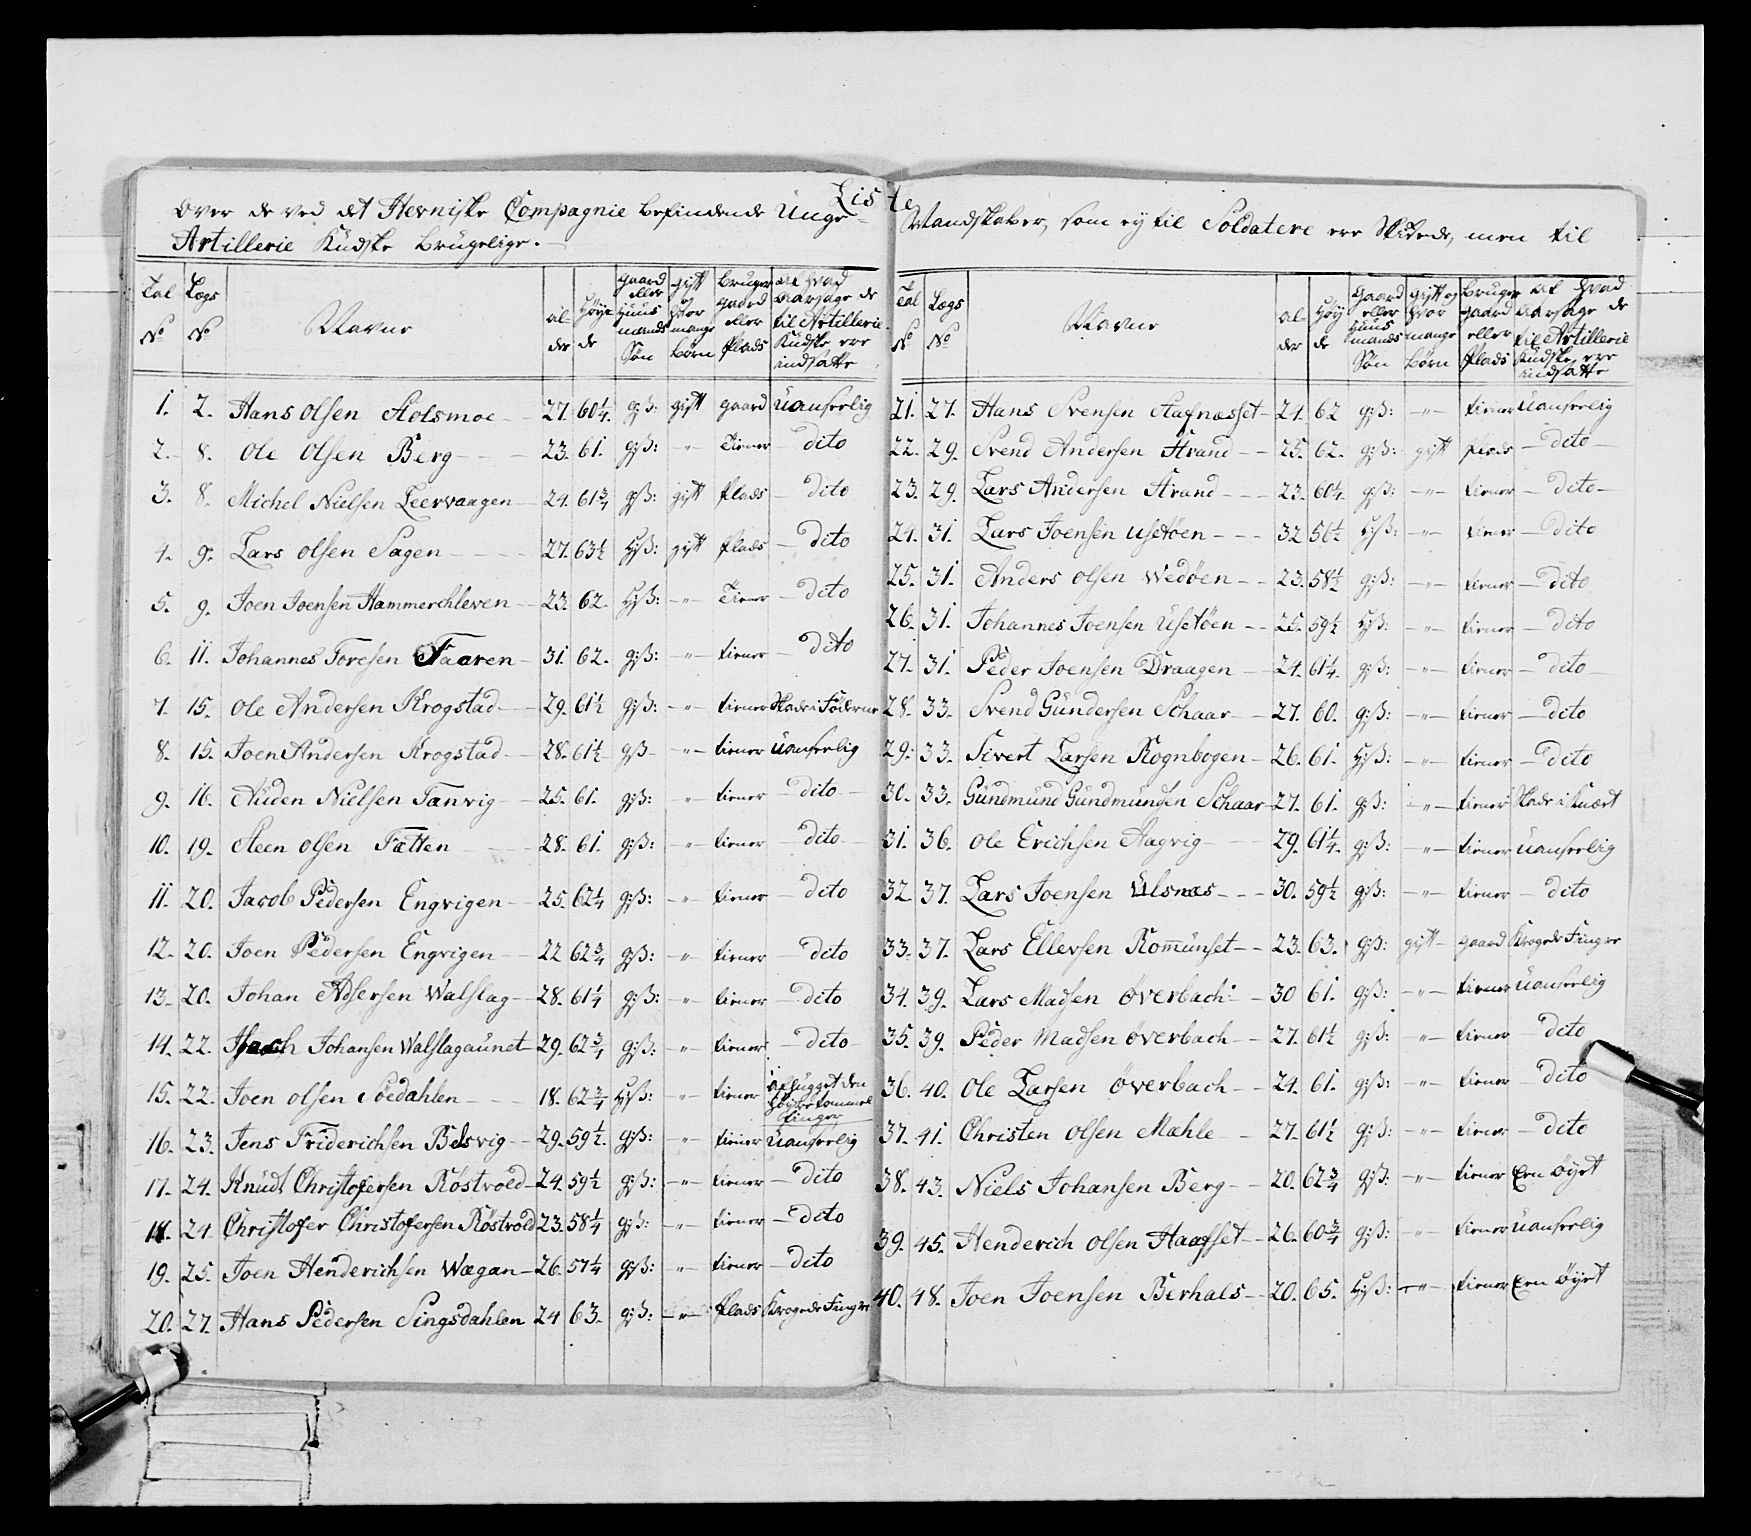 Liste
Over de ved det Hevniske Compagnie befindende Unge Mandskaber, som ej til Soldatere ere Skikede, men til
Artillerie Kudske brugelige.
Tal No Lægs No Navne alder Højde gaard eller Huusmands Søn gift og hvor mange børn bruger gaard eller Plads af hvad aarsage de til Artillerie Kudske ere indsatte
1. 2. Hans Olsen Stolsmoe 27. 60 1/4. gß: gift gaard uanseelig
2. 8. Ole Olsen Berg 23. 61. gß: -"- Tiener dito
3. 8. Michel Nielsen Leervaagen 24. 61 3/4 gß: gift Plads dito
4. 9. Lars Olsen Sagen 27. 63 1/2 Hß: gift Plads dito
5. 9. Joen Joensen Hammerchleven 23. 62. Hß: -"- Tiener dito
6. 11. Johannes Toresen Faaren 31. 62. gß: -"- tiener dito
7. 15. Ole Andersen Krogstad 29. 61 1/2 gß: -"- tiener Skade i Føderne
8. 15. Joen Andersen Krogstad 28. 61 1/2 gß -"- tiener uanseelig
9. 16. Auden Nielsen Tanvig 25. 61. gß: -"- tiener dito
10. 19. Steen Olsen Fætten 28. 61. gß: -"- tiener dito
11. 20. Jacob Pedersen Engvigen 25. 62 1/4 gß: -"- tiener dito
12. 20. Joen Pedersen Engvigen 22 62 3/4 gß: -"- tiener dito
13. 20. Johan Adsersen Walslag 28. 61 1/4 gß: -"- tiener dito
14. 22. Johansen Walslagaunet 29. 62 3/4 gß: -"- tiener dito
15. 22. Joen Olsen Soedahlen 18. 62 3/4 Hß: -"- tiener afhugget den højre tommelfinger
16. 23. Jens Friderichsen Belsvig 29. 59 1/2. gß: -"- tiener uanseelig
17. 24. Knudt Christofersen Røstvold 24. 59 1/2 gß: -"- tiener dito
18. 24. Christofer Christofersen Røstvold 23. 58 1/4 gß: -"- tiener dito
19. 25. Joen Henderichsen Wægan 26. 57 1/4 gß: -"- tiener dito
20. 27. Hans Pedersen Singsdahlen 24 63. gß: -"- Plads Krogede Fingre
Tal No Lægs No Navne alder Højde Gaard eller Huusmands Søn gift og hvor mange børn bruger gaard eller Plads af hvad aarsage de til Artillerie Kudske ere indsatte
21. 27. Hans Svensen Aafnæsset 21. 62 gß: -"- tiener uanseelig
22. 29. Svend Andersen Strand 25. 62. gß: gift plads dito
23. 29. Lars Andersen Strand 23. 60 1/4. gß: -"- tiener dito
24. 31. Lars Joensen Usetøen 32 56 1/2 Hß: -"- tiener dito
25. 31. Anders Olsen Wedøen 23. 58 1/2 gß: -"- tiener dito
26. 31. Johannes Joensen Usetøen 25. 59 1/2 Hß: -"- tiener dito
27. 31. Peder Joensen Draagen 24. 61 1/4. gß: -"- tiener dito
28. 33. Svend Gundersen Schaar 27. 60. gß: -"- tiener dito
29. 33. Sivert Larsen Rognbogen 26. 61. Hß: -"- tiener dito
30. 33. Gundmund Gundmunsen Schaar 27. 61. gß: -"- tiener Skade i Knæet
31. 36. Ole Erichsen Aagvig 29. 61 1/4. gß: -"- tiener uanseelig
32. 37. Lars Joensen Ulsnæs 30. 59 1/2 gß: -"- tiener dito
33. 37. Lars Ellevsen Romunset 23. 63. gß: gift gaard Krogede Fingre
34. 39. Lars Madsen Øverbach 30 61. gß: -"- tiener uanseelig
35. 39. Peder Madsen Øverbach 27. 61 1/2 gß: -"- tiener dito
36. 40. Ole Larsen Øverbach 24. 61. gß: -"- tiener dito
37. 41. Christen Olsen Mæhle 27. 61 1/2 gß: -"- tiener dito
38. 43. Niels Johansen Berg 20. 62 3/4 gß: -"- tiener Een Øyet
39. 45. Henderich Olsen Haafset 26. 60 3/4 gß: -"- tiener uanseelig
40. 48. Joen Joensen Berhals 20. 65. Hß: -"- tiener Een Øyet